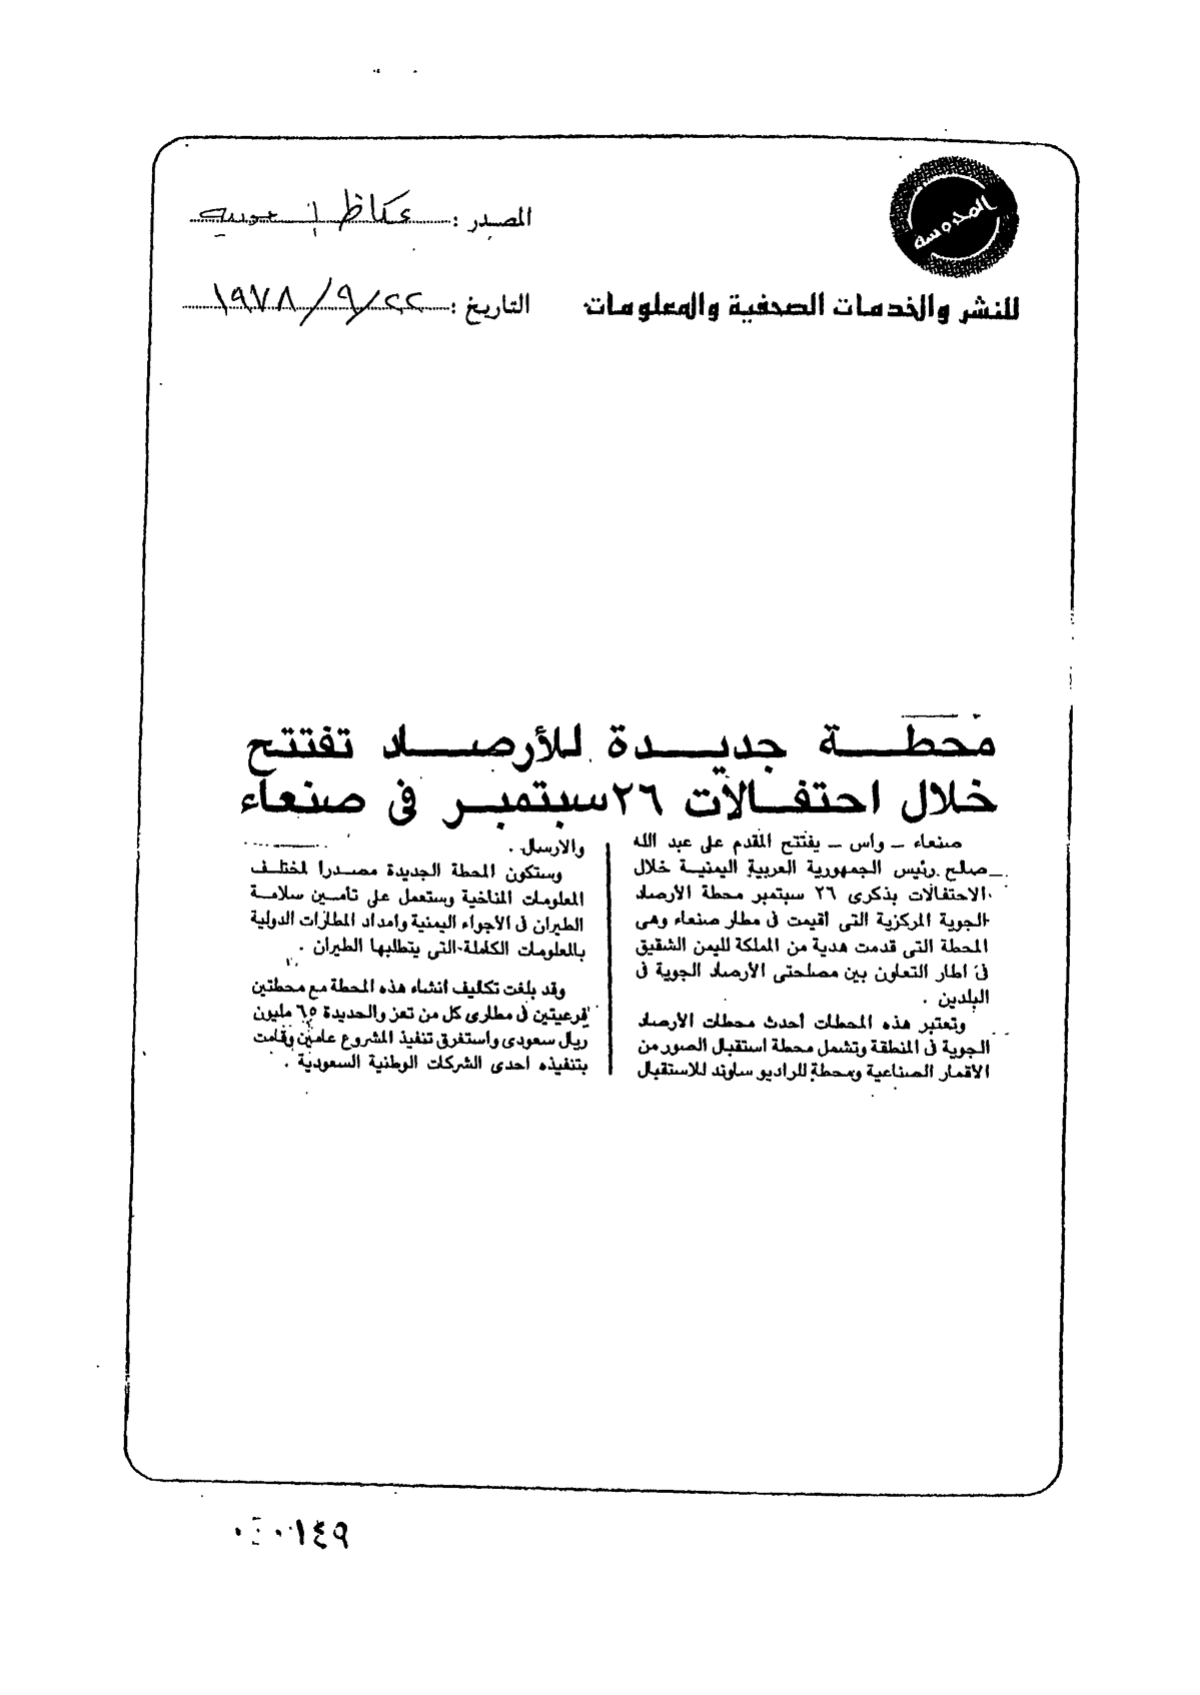 المحروسة
للنشر والخدمات الصحفية والمعلومات
المصدر : عكاظ السعودية
التاريخ : ٢٢/٩/١٩٧٨
محطة جديدة للأرصاد تفتتح
خلال احتفالات ٢٦ سبتمبر فى صنعاء
صنعاء – واس – يفتتح المقدم على عبد الله
صالح رئيس الجمهورية العربية اليمنية خلال
الاحتفالات بذكرى ٢٦ سبتمبر محطة الأرصاد
الجوية المركزية التى أقيمت فى مطار صنعاء وهى
المحطة التى قدمت هدية من المملكة لليمن الشقيق
فى اطار التعاون بين مصلحتى الأرصاد الجوية فى
البلدين .
وتعتبر هذه المحطات أحدث محطات الأرصاد
الجوية فى المنطقة وتشمل محطة استقبال الصور من
الاقمار الصناعية ومحطة للراديو ساوند للاستقبال
والارسال .
وستكون المحطة الجديدة مصدرا لمختلف
المعلومات المناخية وستعمل على تأمين سلامة
الطيران فى الأجواء اليمنية وامداد المطارات الدولية
بالمعلومات الكاملة التى يتطلبها الطيران .
وقد بلغت تكاليف انشاء هذه المحطة مع محطتين
فرعيتين فى مطارى كل من تعز والحديدة ٦٫٥ مليون
ريال سعودى واستغرق تنفيذ المشروع عامين وقامت
بتنفيذه احدى الشركات الوطنية السعودية .